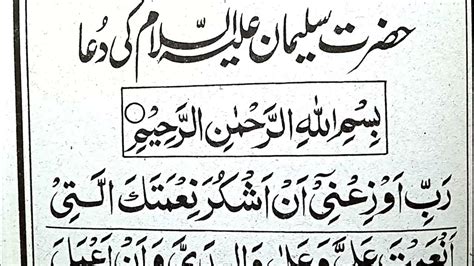 حضرت سلیمان علیہ السلام کی دُعا
بِسْمِ اللّٰهِ الرَّحْمٰنِ الرَّحِیْمِ
رَبِّ اَوْزِعْنِیْۤ اَنْ اَشْكُرَ نِعْمَتَكَ الَّتِیْۤ
اَنْعَمْتَ عَلَیَّ وَعَلٰى وَالِدَیَّ وَاَنْ اَعْمَلَ